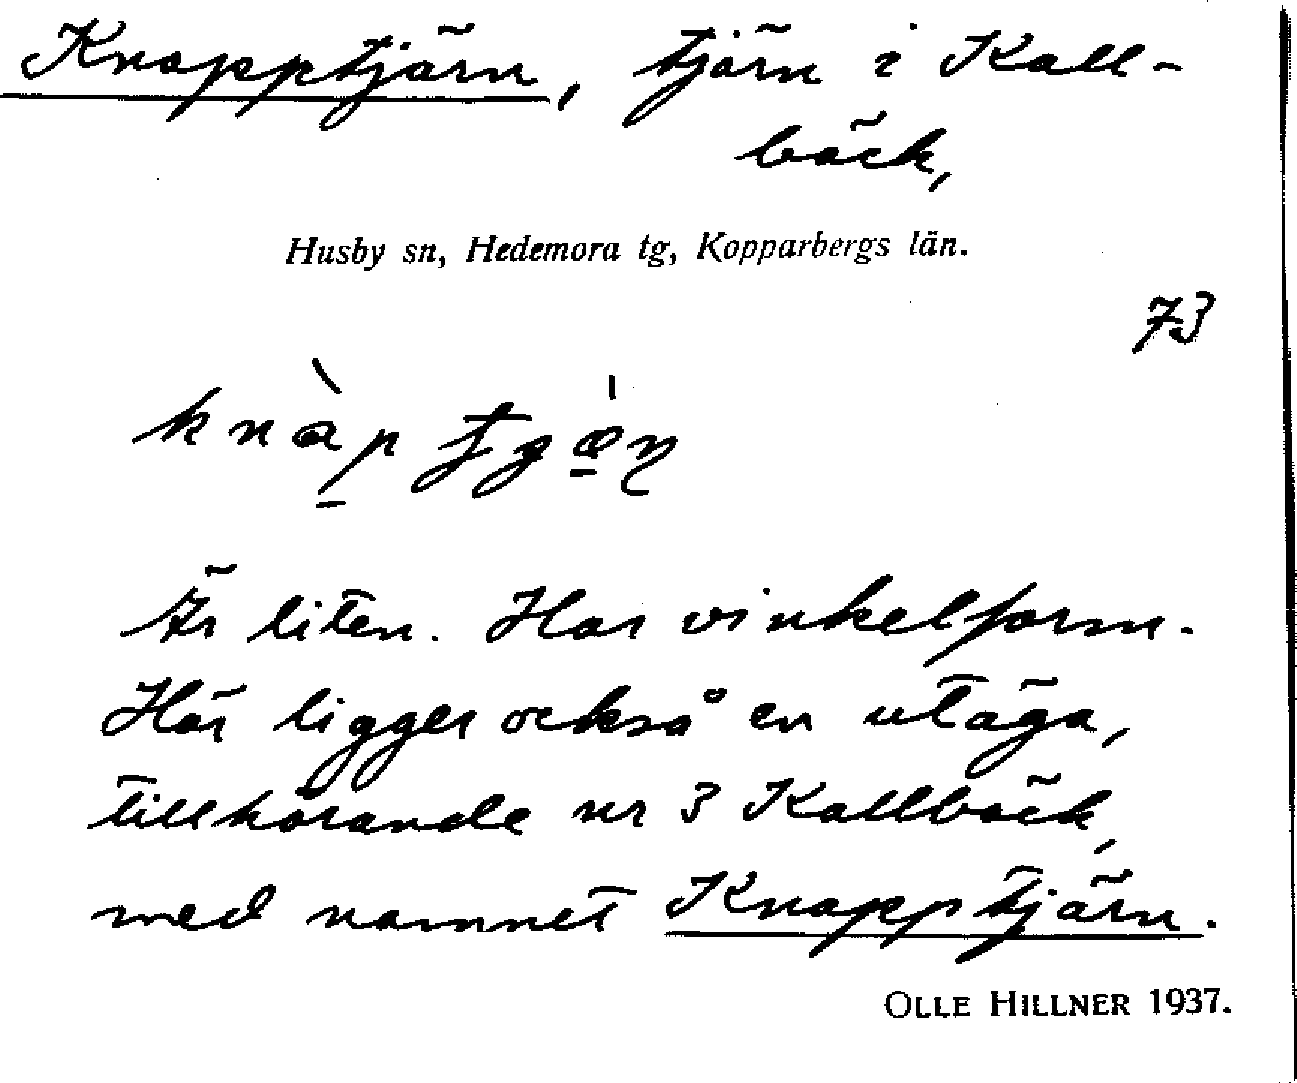 Knapptjärn, tjärn i Kall-
bäck,
Husby sn, Hedemora tg, Kopparbergs län.
73
Är liten. Har vinkelform.
Här ligger också en utäga,
tillhörande nr 3 Kallbäck,
med namnet Knapptjärn.
OLLE HILLNER 1937.